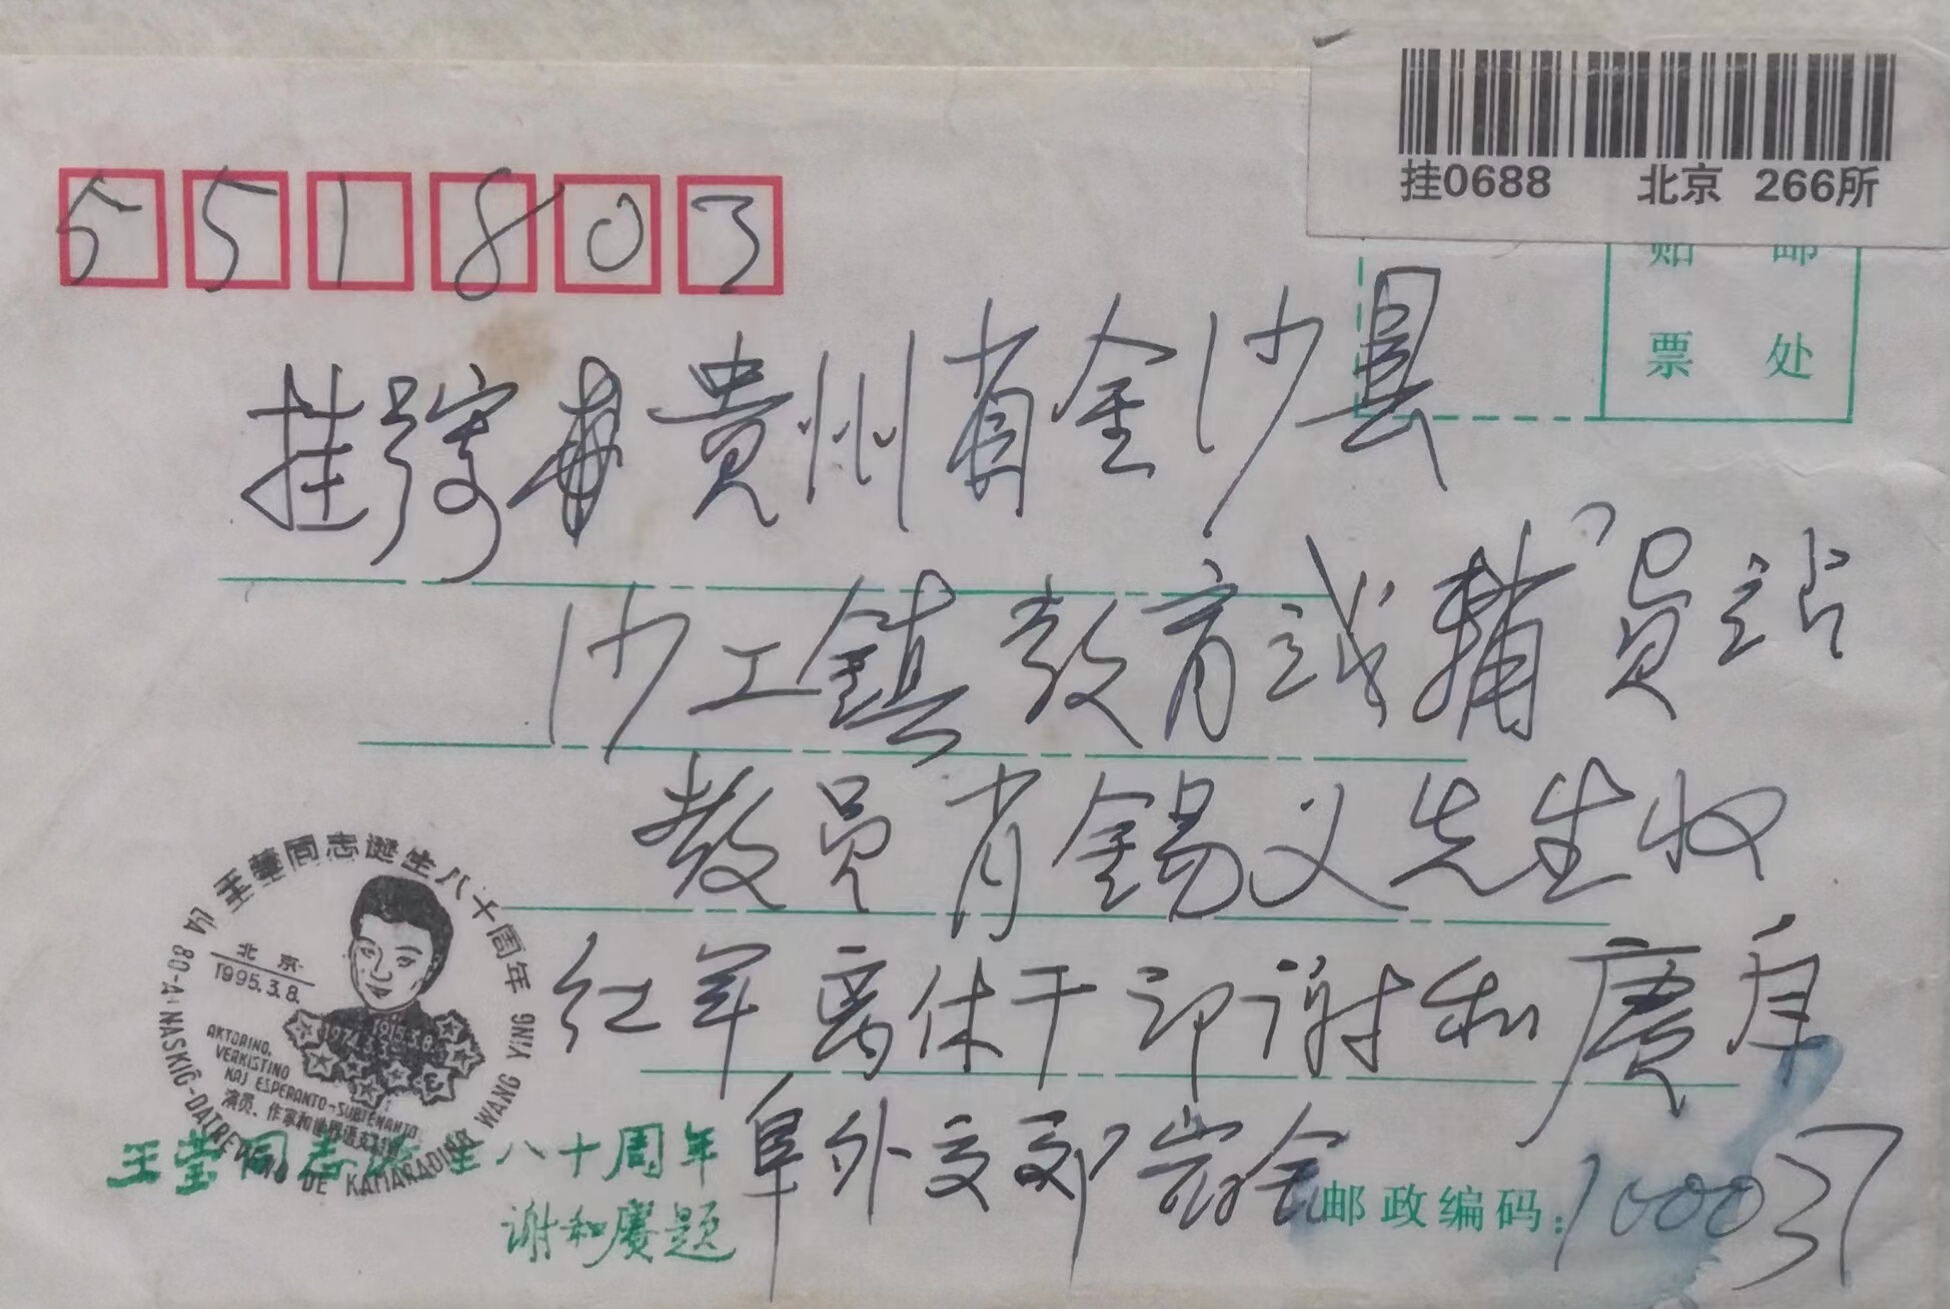 挂0688 北京 266所
贴邮
票处
551803
挂号寄贵州省金沙县
沙工鎮教育 辅员站
教员肖錫义先生收
红军离休干部谢和赓自
阜外交部宿舍
邮政编码：100037
王莹同志诞生八十周年
北京
1995.3.8.
1915.3.8.
1974.3.3
AKTORINO,
VERKISTINO
KAJ ESPERANTO-SUBTENANTO
演员、作家和世界语支持者
LA 80-A NASKIĜ-DATREVENO DE KAMARADINO WANG YING
王莹同志诞生八十周年
谢和赓题